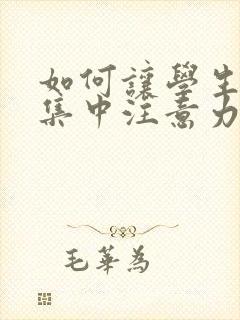 如何讓學生
集中注意力
毛華為